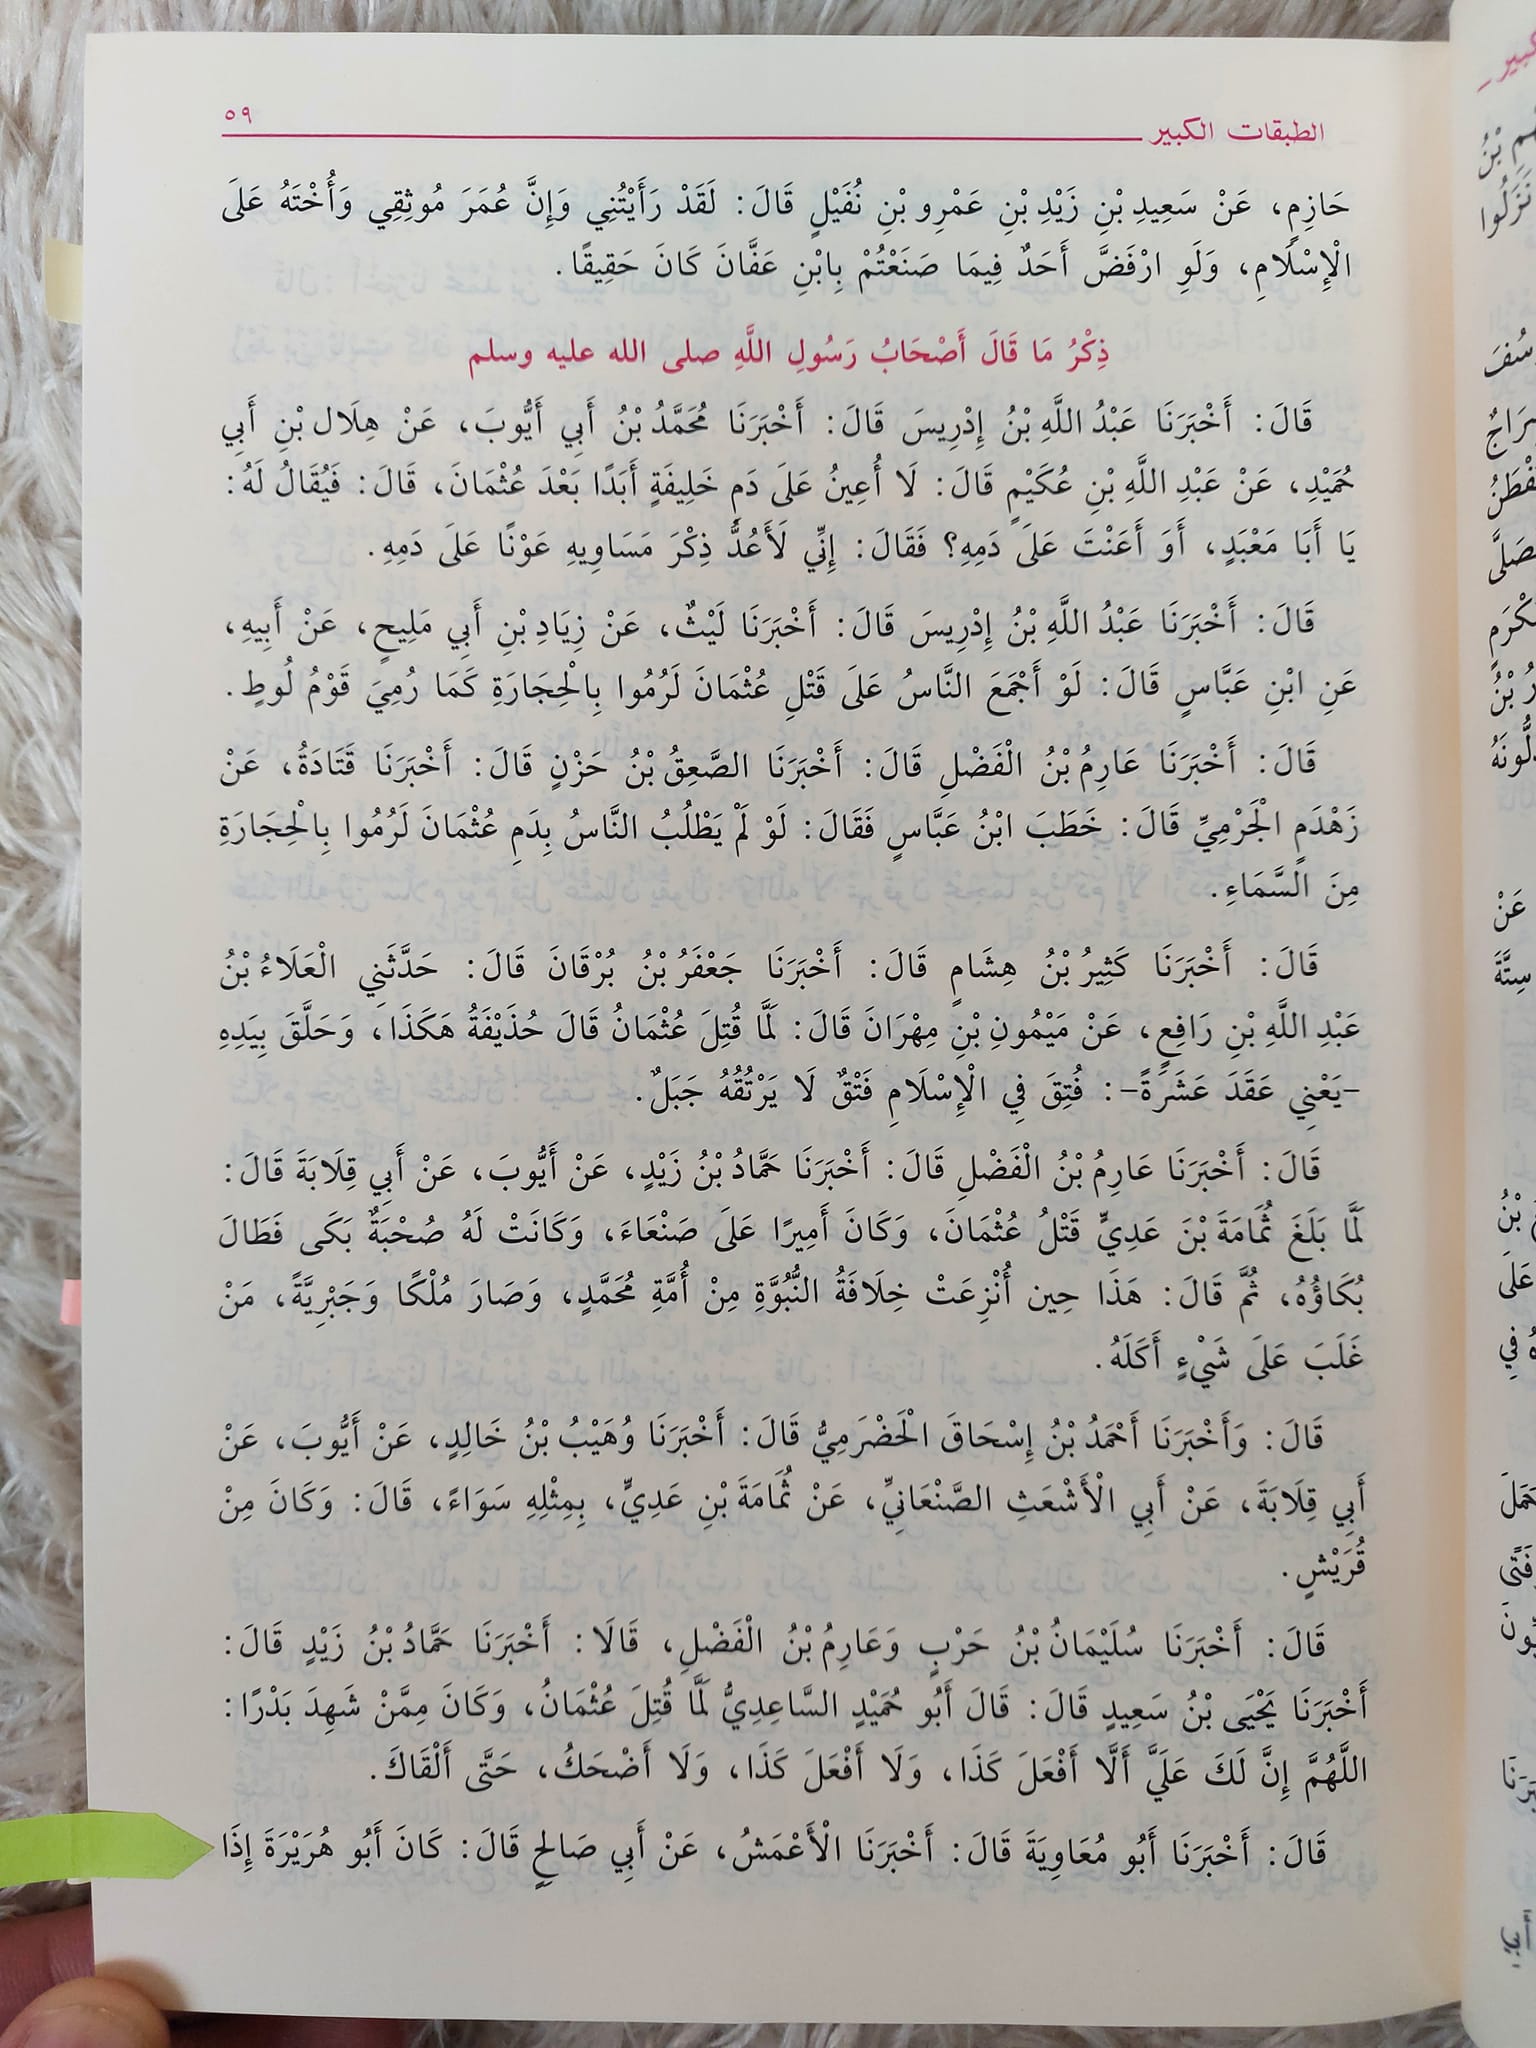 الطبقات الكبير ٥٩
حَازِمٍ، عَنْ سَعِيدِ بْنِ زَيْدِ بْنِ عَمْرِو بْنِ نُفَيْلٍ قَالَ: لَقَدْ رَأَيْتُنِي وَإِنَّ عُمَرَ مُوثِقِي وَأُخْتَهُ عَلَى
الْإِسْلَامِ، وَلَوِ ارْفَضَّ أَحَدٌ فِيمَا صَنَعْتُمْ بِابْنِ عَفَّانَ كَانَ حَقِيقًا.
ذِكْرُ مَا قَالَ أَصْحَابُ رَسُولِ اللَّهِ صلى الله عليه وسلم
قَالَ: أَخْبَرَنَا عَبْدُ اللَّهِ بْنُ إِدْرِيسَ قَالَ: أَخْبَرَنَا مُحَمَّدُ بْنُ أَبِي أَيُّوبَ، عَنْ هِلَالِ بْنِ أَبِي
حُمَيْدِ، عَنْ عَبْدِ اللَّهِ بْنِ عُكَيْمٍ قَالَ: لَا أُعِينُ عَلَى دَمِ خَلِيفَةٍ أَبَدًا بَعْدَ عُثْمَانَ، قَالَ: فَيُقَالُ لَهُ:
يَا أَبَا مَعْبَدٍ، أَوَ أَعَنْتَ عَلَى دَمِهِ؟ فَقَالَ: إِنِّي لَأَعُدُّ ذِكْرَ مَسَاوِيهِ عَوْنًا عَلَى دَمِهِ.
قَالَ: أَخْبَرَنَا عَبْدُ اللَّهِ بْنُ إِدْرِيسَ قَالَ: أَخْبَرَنَا لَيْثٌ، عَنْ زِيَادِ بْنِ أَبِي مَلِيحٍ، عَنْ أَبِيهِ،
عَنِ ابْنِ عَبَّاسٍ قَالَ: لَوْ أَجْمَعَ النَّاسُ عَلَى قَتْلِ عُثْمَانَ لَرُمُوا بِالْحِجَارَةِ كَمَا رُمِيَ قَوْمُ لُوطٍ.
قَالَ: أَخْبَرَنَا عَارِمُ بْنُ الْفَضْلِ قَالَ: أَخْبَرَنَا الصَّعِقُ بْنُ حَزْنٍ قَالَ: أَخْبَرَنَا قَتَادَةُ، عَنْ
زَهْدَمٍ الْجَرْمِيِّ قَالَ: خَطَبَ ابْنُ عَبَّاسٍ فَقَالَ: لَوْ لَمْ يَطْلُبُ النَّاسُ بِدَمِ عُثْمَانَ لَرُمُوا بِالْحِجَارَةِ
مِنَ السَّمَاءِ.
قَالَ: أَخْبَرَنَا كَثِيرُ بْنُ هِشَامٍ قَالَ: أَخْبَرَنَا جَعْفَرُ بْنُ بُرْقَانَ قَالَ: حَدَّثَنِي الْعَلَاءُ بْنُ
عَبْدِ اللَّهِ بْنِ رَافِعٍ، عَنْ مَيْمُونِ بْنِ مِهْرَانَ قَالَ: لَمَّا قُتِلَ عُثْمَانُ قَالَ حُذَيْفَةُ هَكَذَا، وَحَلَّقَ بِيَدِهِ
-يَعْنِي عَقَدَ عَشَرَةً-: فُتِقَ فِي الْإِسْلَامِ فَتْقٌ لَا يَرْتُقُهُ جَبَلٌ.
قَالَ: أَخْبَرَنَا عَارِمُ بْنُ الْفَضْلِ قَالَ: أَخْبَرَنَا حَمَّادُ بْنُ زَيْدٍ، عَنْ أَيُّوبَ، عَنْ أَبِي قِلَابَةَ قَالَ:
لَمَّا بَلَغَ ثُمَامَةَ بْنَ عَدِيٍّ قَتْلُ عُثْمَانَ، وَكَانَ أَمِيرًا عَلَى صَنْعَاءَ، وَكَانَتْ لَهُ صُحْبَةٌ بَكَى فَطَالَ
بُكَاؤُهُ، ثُمَّ قَالَ: هَذَا حِين أُنْزِعَتْ خِلَافَةُ النُّبُوَّةِ مِنْ أُمَّةِ مُحَمَّدٍ، وَصَارَ مُلْكًا وَجَبْرِيَّةً، مَنْ
غَلَبَ عَلَى شَيْءٍ أَكَلَهُ.
قَالَ: وَأَخْبَرَنَا أَحْمَدُ بْنُ إِسْحَاقَ الْحَضْرَمِيُّ قَالَ: أَخْبَرَنَا وُهَيْبُ بْنُ خَالِدٍ، عَنْ أَيُّوبَ، عَنْ
أَبِي قِلَابَةَ، عَنْ أَبِي الْأَشْعَثِ الصَّنْعَانِيِّ، عَنْ ثُمَامَةَ بْنِ عَدِيٍّ، بِمِثْلِهِ سَوَاءً، قَالَ: وَكَانَ مِنْ
قُرَيْشٍ.
قَالَ: أَخْبَرَنَا سُلَيْمَانُ بْنُ حَرْبٍ وَعَارِمُ بْنُ الْفَضْلِ، قَالَا: أَخْبَرَنَا حَمَّادُ بْنُ زَيْدٍ قَالَ:
أَخْبَرَنَا يَحْيَى بْنُ سَعِيدٍ قَالَ: قَالَ أَبُو حُمَيْدٍ السَّاعِدِيُّ لَمَّا قُتِلَ عُثْمَانُ، وَكَانَ مِمَّنْ شَهِدَ بَدْرًا:
اللَّهُمَّ إِنَّ لَكَ عَلَيَّ أَلَّا أَفْعَلَ كَذَا، وَلَا أَفْعَلَ كَذَا، وَلَا أَضْحَكُ، حَتَّى أَلْقَاكَ.
قَالَ: أَخْبَرَنَا أَبُو مُعَاوِيَةَ قَالَ: أَخْبَرَنَا الْأَعْمَشُ، عَنْ أَبِي صَالِحٍ قَالَ: كَانَ أَبُو هُرَيْرَةَ إِذَا